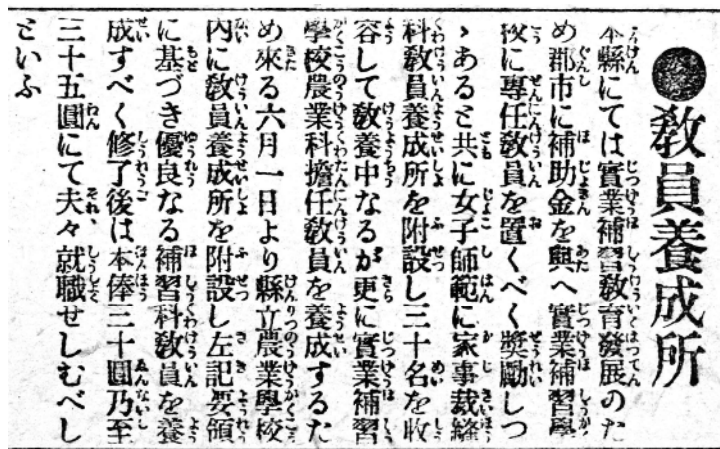 ●教員養成所
本縣にては實業補習教育發展のた
め郡市に補助金を與へ實業補習學
校に專任教員を置くべく奬勵しつ
ゝあると共に女子師範に家事裁縫
科教員養成所を附設し三十名を收
容して教養中なるが更に實業補習
學校農業科擔任教員を養成するた
め來る六月一日より縣立農業學校
內に教員養成所を附設し左記要領
に基づき優良なる補習科教員を養
成すべく修了後は本俸三十圓乃至
三十五圓にて夫々就職せしむべし
といふ